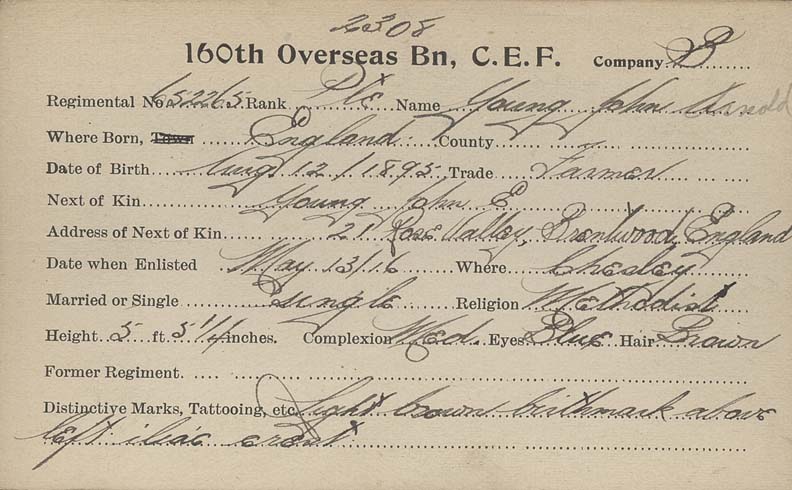 2308
160th Overseas Bn, C.E.F. Company B
Regimental No. 652265 Rank Pte Name Young John Arnold
Where Born, Town England County
Date of Birth Aug. 12/1895 Trade Farmer
Next of Kin Young John E
Address of Next of Kin 21 Rose Valley, Brentwood, England
Date when Enlisted May 13/16 Where Chesley
Married or Single Single Religion Methodist
Height 5 ft 5 1/4 inches. Complexion Med. Eyes Blue Hair Brown
Former Regiment.
Distinctive Marks, Tattooing, etc. Light brown birthmark above
left iliac crest